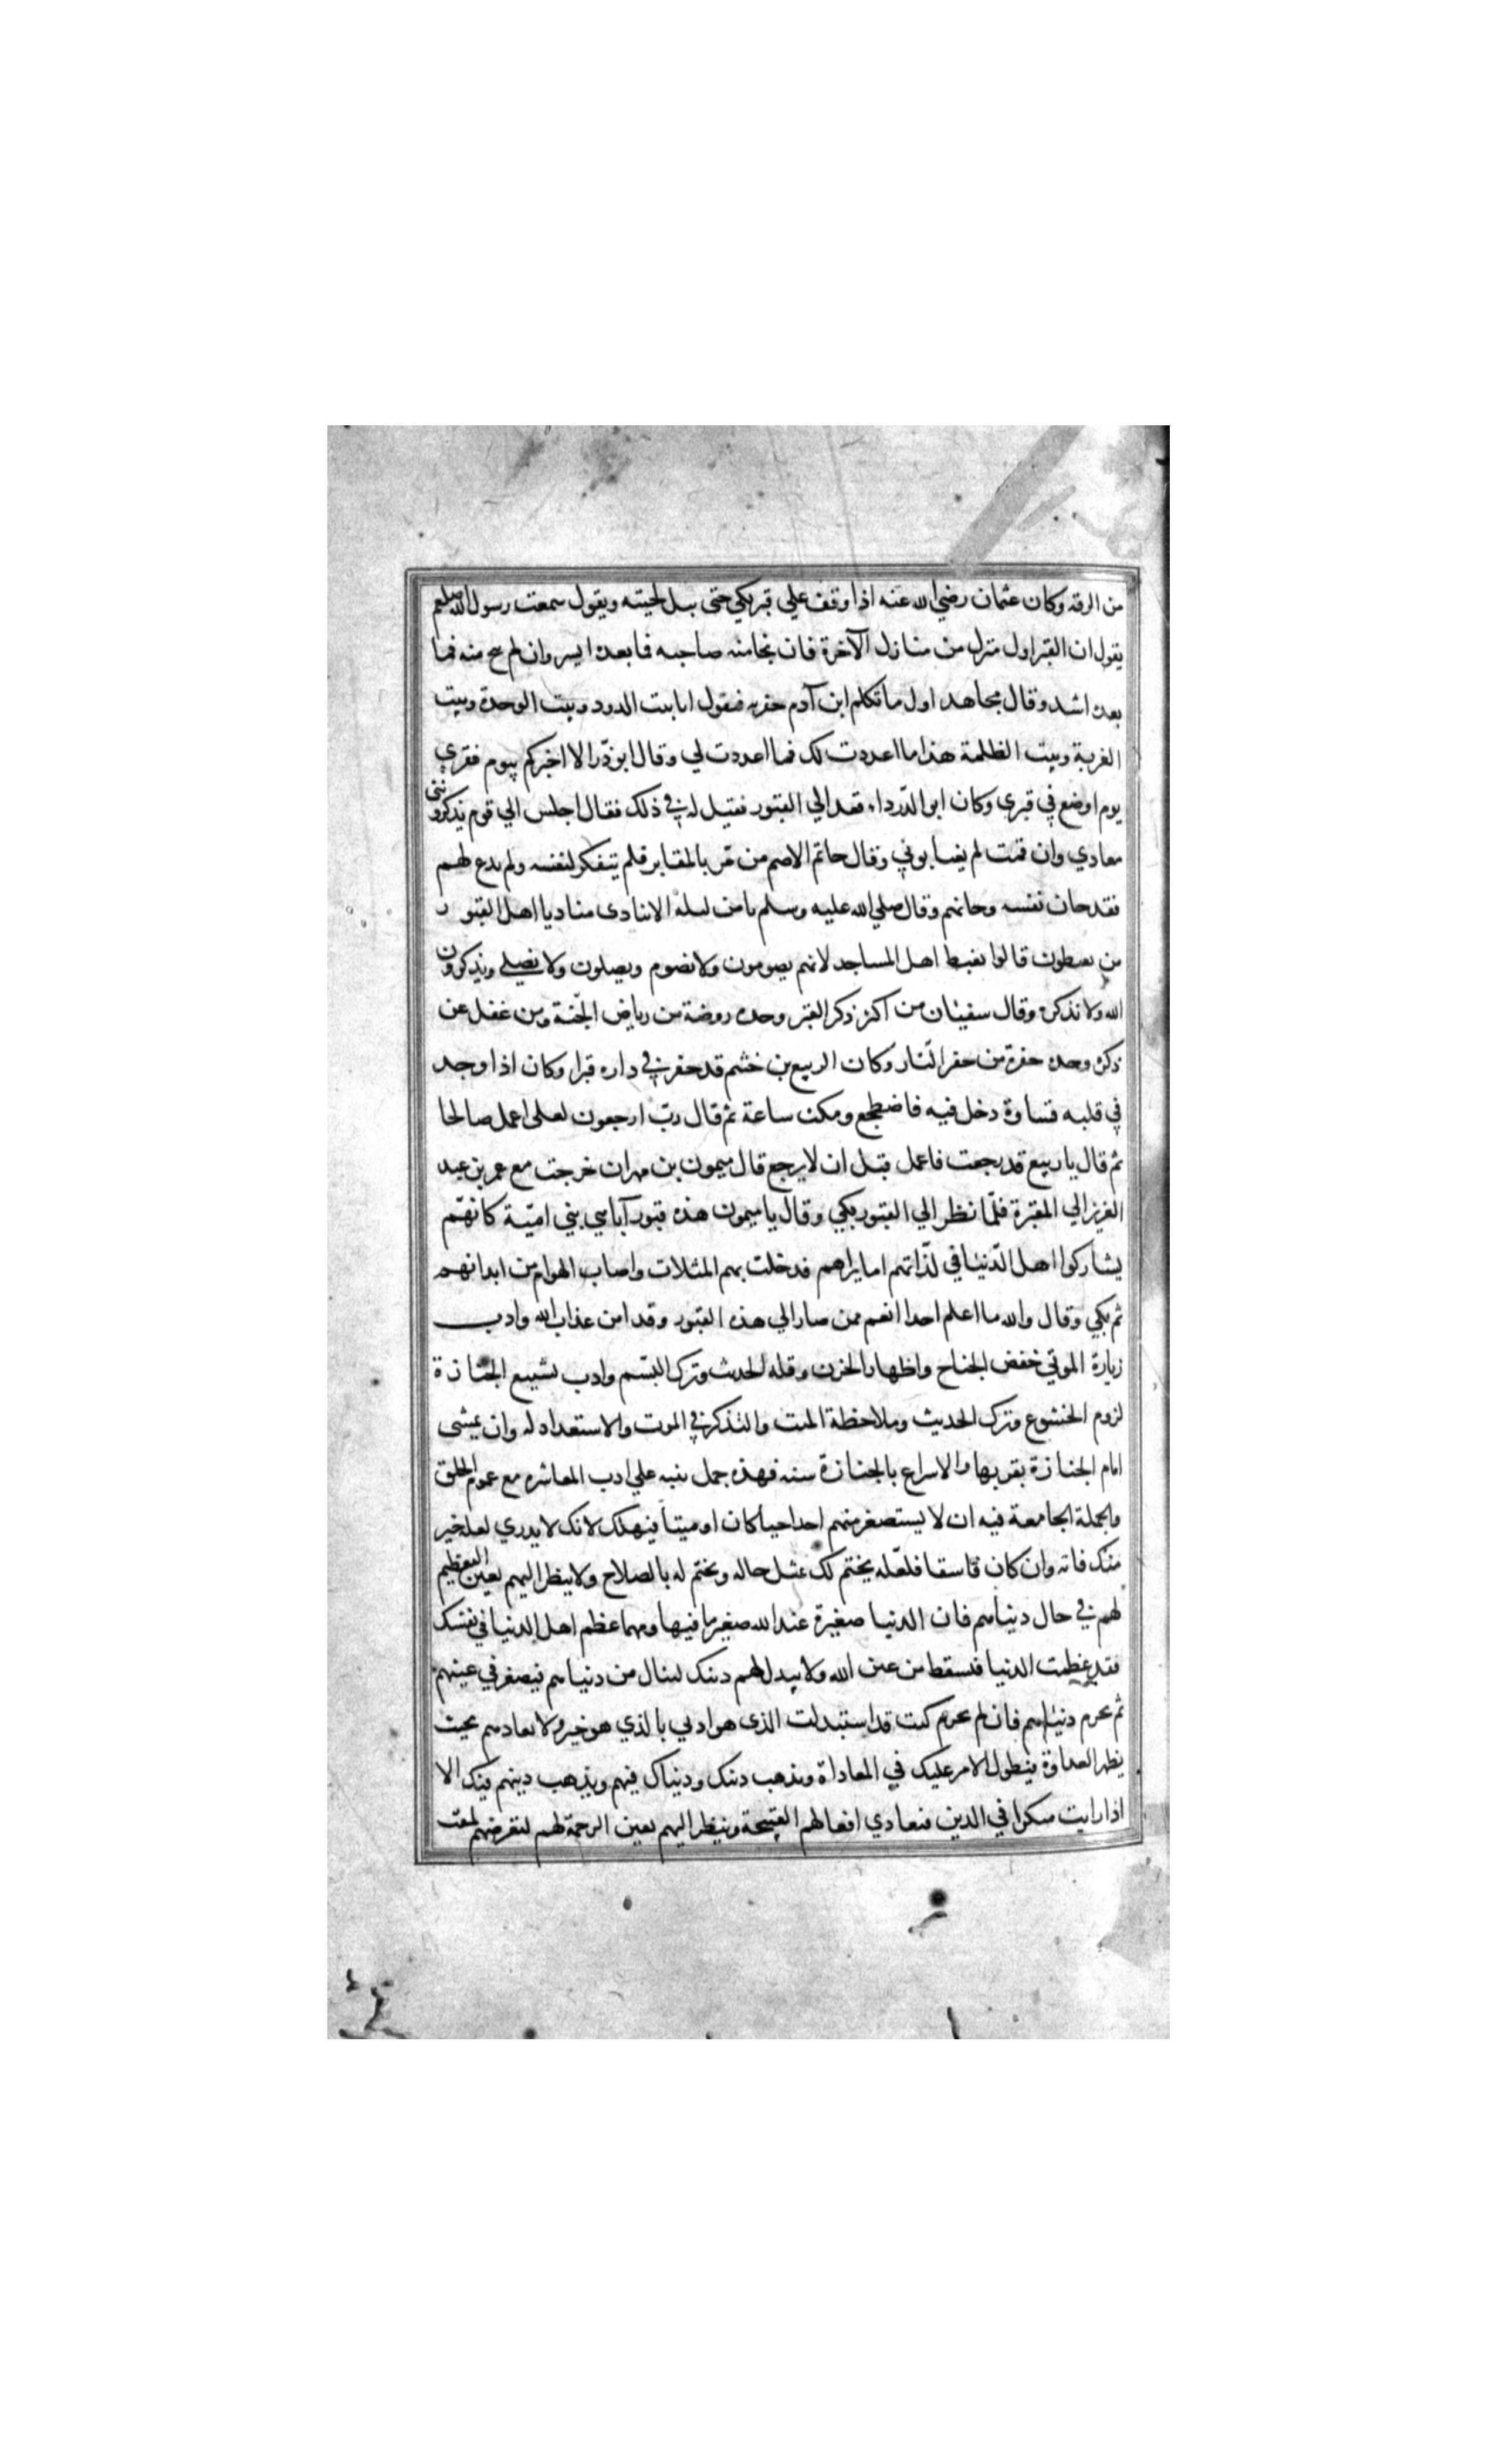 من الرقه وكان عثمان رضي الله عنه اذا وقف علي قبر بكي حتى يبل لحيته ويقول سمعت رسول الله صلعم
يقول ان القبر اول منزل من منازل الآخرة فان نجا منه صاحبه فما بعده ايسر وان لم ينج منه فما
بعده اشد وقال مجاهد اول ما تكلم ابن آدم حفرته فيقول انا بيت الدود وبيت الوحدة وبيت
الغربة وبيت الظلمة هذا ما اعددت لك فما اعددت لي وقال ابو ذّر الا اخبركم بيوم فقري
يوم اوضع في قبري وكان ابو الدّرداء يقعد الي القبور فقيل له في ذلك فقال اجلس الي قوم يذكرونني
معادي وان قمت لم يغتابوني وقال حاتم الاصم من مّر بالمقابر فلم يتفكر لنفسه ولم يدع لهم
فقد خان نفسه وخانهم وقال صلي الله عليه وسلم ما من ليلة الا ينادى مناد يا اهل القبور
من تغبطون قالوا نغبط اهل المساجد لانهم يصومون ولا نصوم ويصلون ولا نصلي ويذكرون
الله ولا نذكره وقال سفيان من اكثر ذكر القبر وجده روضة من رياض الجّنة ومن غفل عن
ذكره وجده حفرة من حفر النّار وكان الربيع بن خثيم قد حفر في داره قبرا وكان اذا وجد
في قلبه قساوة دخل فيه فاضطجع ومكث ساعة ثم قال ربّ ارجعون لعلى اعمل صالحا
ثم قال يا ربيع قد رجعت فاعمل قبل ان لا يرجع قال ميمون بن مهران خرجت مع عمر بن عبد
العزيز الي المقبرة فلمّا نظر الي القبور بكي وقال يا ميمون هذه قبور آباءي بني اميّة كانهّم
يشاركوا اهل الدّنيا في لذّاتهم اما يراهم قد خلت بهم المثلات واصاب الهوام من ابدانهم
ثم بكي وقال والله ما اعلم احدا انعم ممن صار الي هذه القبور وقد امن عذاب الله وادب
زيارة الموتي خفض الجناح واظهار الحزن وقلة الحديث وترك التبسّم وادب تشييع الجنازة
لزوم الخشوع وترك الحديث وملاحظة الميت والتذكر في الموت والاستعداد له وان يمشى
امام الجنازة بقربها والاسراع بالجنازة سنه فهذه جمل ينبه علي ادب المعاشره مع عموم الخلق
والجملة الجامعة فيه ان لا يستصغر منهم احدا حيا كان او ميتا فيهلك لانك لا يدري لعله خير
منك فانه وان كان فاسقا فلعّله يختم لك بمثل حاله ويختم له بالصلاح ولا ينظر اليهم بعين التعظيم
لهم في حال دنياهم فان الدنيا صغيرة عند الله صغير ما فيها ومهما عظم اهل الدنيا في نفسك
فقد عظمت الدنيا فتسقط من عين الله ولا يبدل لهم دينك لينال من دنياهم فيصغر في عينهم
ثم يحرم دنياهم فان لم يحرم كنت قد استبدلت الذى هو ادني بالذي هو خير ولا يعادهم بحيث
يظهر العداوة فيطول الامر عليك في المعاداة ويذهب دينك ودنياك فيهم ويذهب دينهم فيك الا
اذا رايت منكرا في الدين فتعادي افعالهم القبيحة وينظر اليهم بعين الرحمة لهم لتعرضهم لمقت